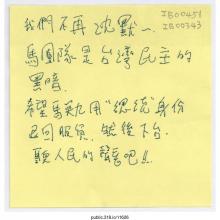 IB00451
IB00343
我們不再沈默、
馬團隊是台灣民主的
黑暗.
希望馬英九用“總統”身份
召回服貿. 然後下台.
聽人民的聲音吧!!
public.318.io/11626